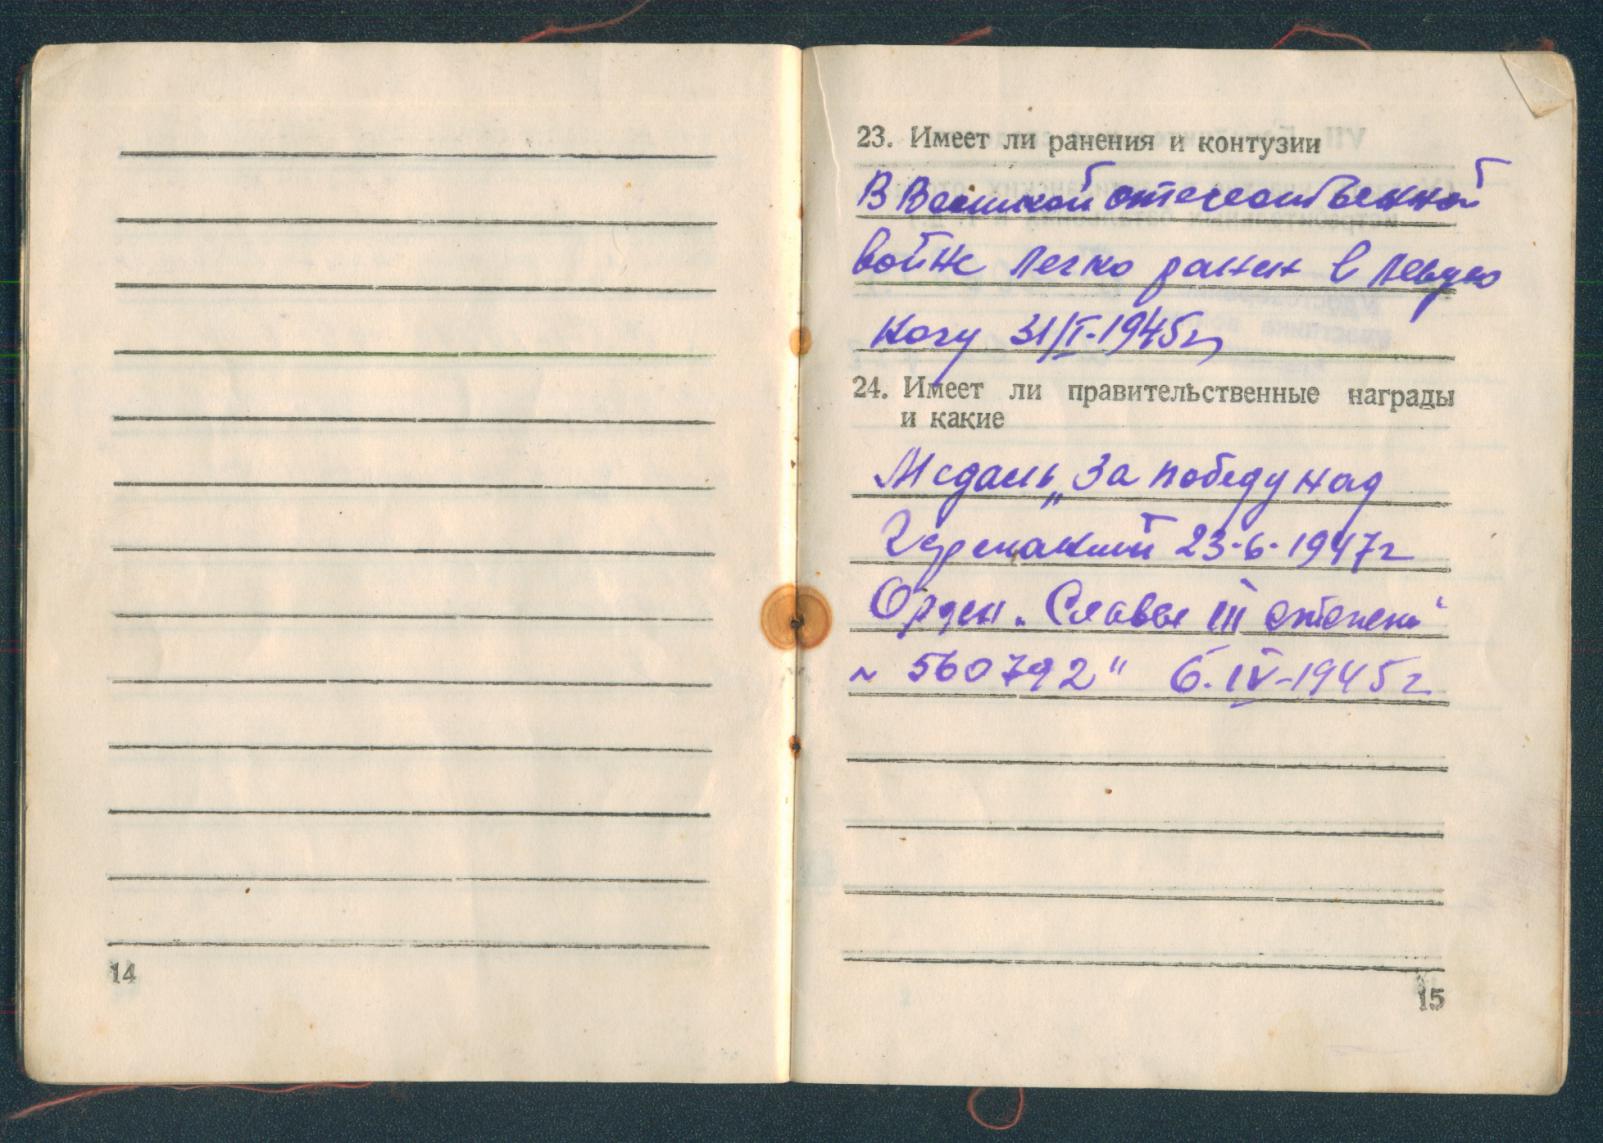 23. Имеет ли ранения и контузии
В Великой отечественной
войне легко ранен в левую
ногу 31/I-1945г.
24. Имеет ли правительственные награды
и какие
Медаль „За победу над
Германией 23-6-1947г
Орден „Славы III степени“
№ 560792" 6.IV-1945г.
14
15